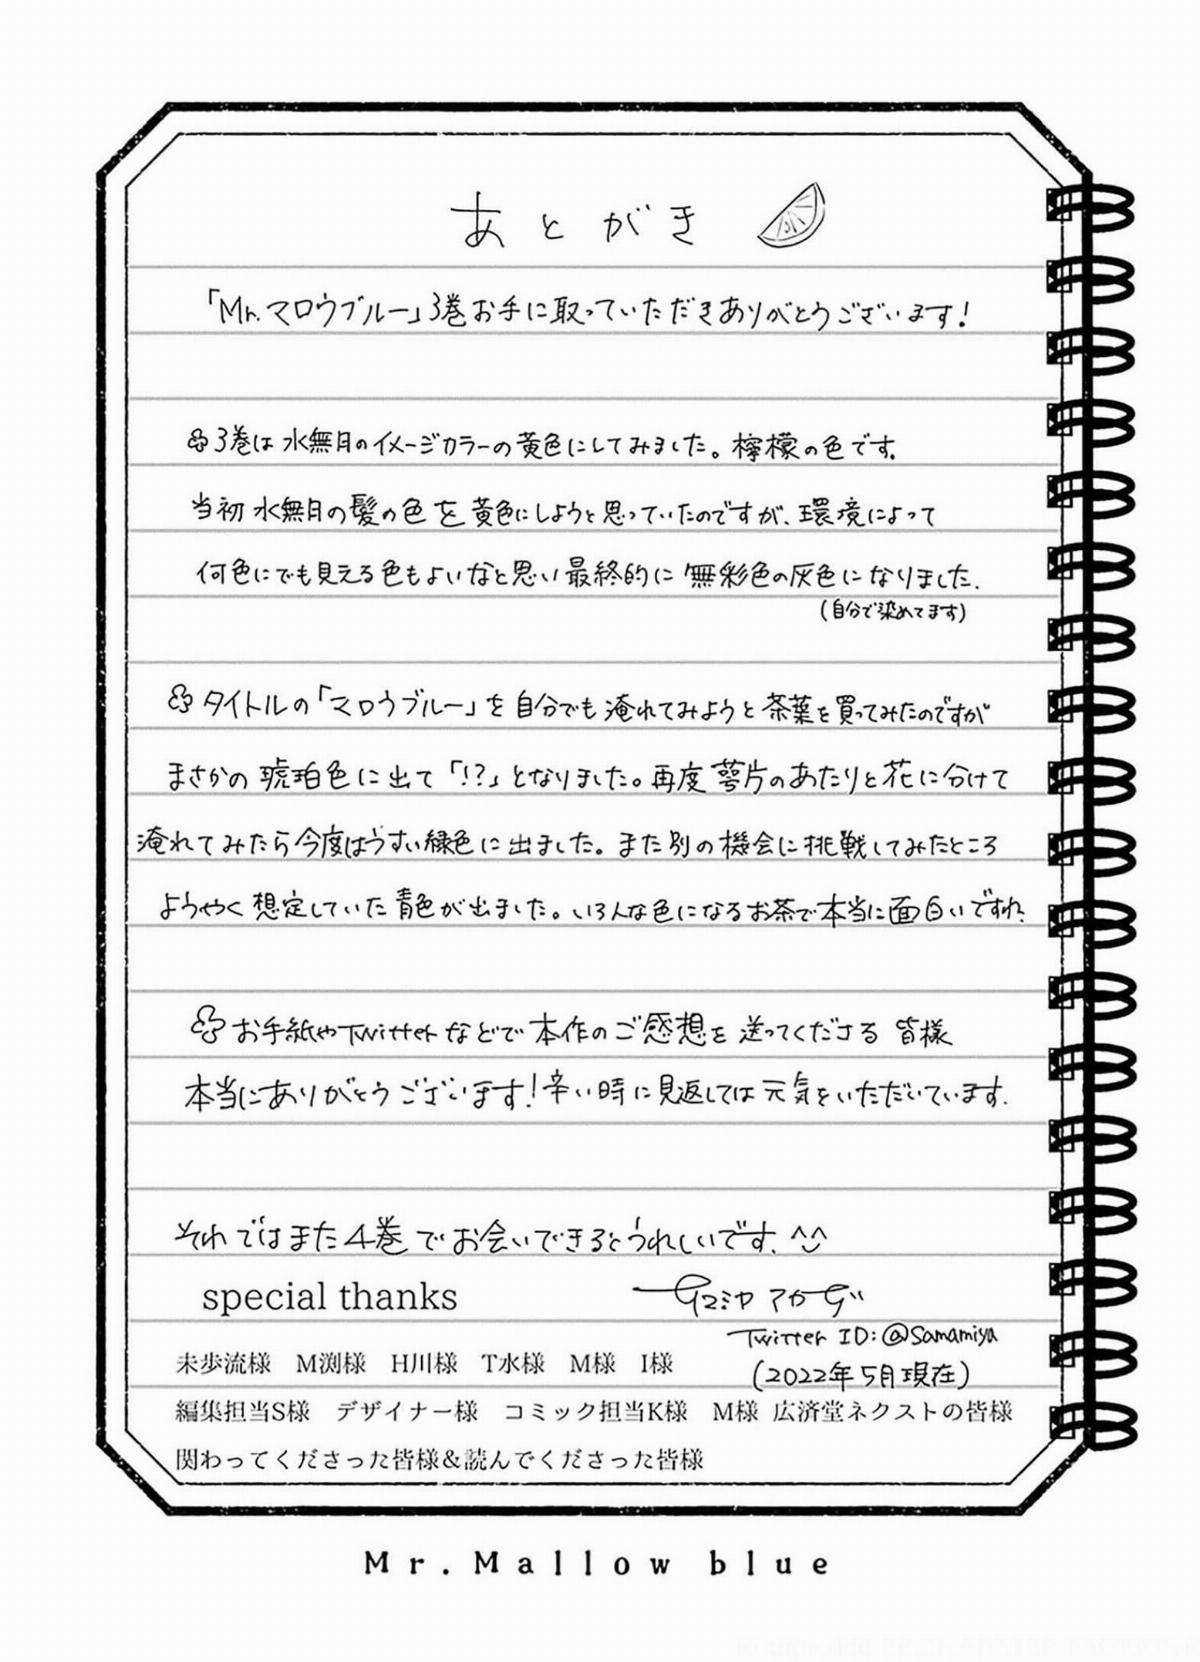 あとがき
「Mr.マロウブルー」3巻お手に取っていただきありがとうございます!
3巻は水無月のイメージカラーの黄色にしてみました。檸檬の色です。
当初水無月の髪の色を黄色にしようと思っていたのですが、環境によって
何色にでも見える色もよいなと思い最終的に無彩色の灰色になりました。
(自分で染めてます)
タイトルの「マロウブルー」を自分でも淹れてみようと茶葉を買ってみたのですが
まさかの琥珀色に出て「!?」となりました。再度萼片のあたりと花に分けて
淹れてみたら今度はうすい緑色に出ました。また別の機会に挑戦してみたところ
ようやく想定していた青色が出ました。いろんな色になるお茶で本当に面白いですね。
お手紙やTwitterなどで本作のご感想を送ってくださる皆様
本当にありがとうございます!辛い時に見返しては元気をいただいています。
それではまた4巻でお会いできるとうれしいです。^^
special thanks
Twitter ID:@Samamiya
(2022年5月現在)
未歩流様 M渕様 H川様 T水様 M様 I様
編集担当S様 デザイナー様 コミック担当K様 M様 広済堂ネクストの皆様
関わってくださった皆様&読んでくださった皆様
Mr. Mallow blue